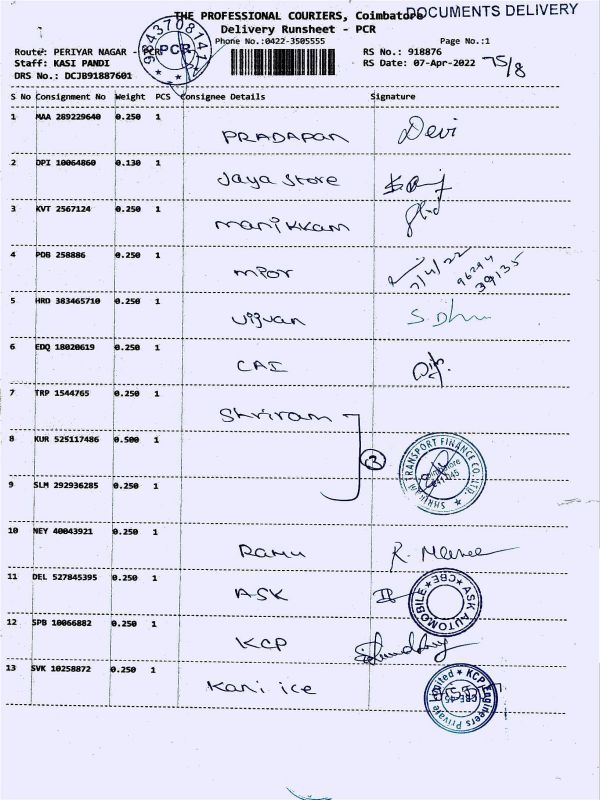 THE PROFESSIONAL COURIERS, Coimbatore
DOCUMENTS DELIVERY
Delivery Runsheet - PCR
Phone No.:0422-3505555
Page No.:1
Route: PERIYAR NAGAR - PCR
RS No.: 918876
Staff: KASI PANDI
RS Date: 07-Apr-2022 75/8
DRS No.: DCJB91887601
PCR
S No Consignment No Weight PCS Consignee Details Signature
1 MAA 289229640 0.250 1
PRADAPAN Devi
2 OPI 10064860 0.130 1
Jaya Store
3 KVT 2567124 0.250 1
manikkam
4 POB 258886 0.250 1
mior 7/4/22 96294 39135
5 HRO 383465710 0.250 1
vijuan S. Dhu
6 EDQ 18020619 0.250 1
CAI
7 TRP 1544765 0.250 1
Shriram
8 KUR 525117486 0.500 1
3
SHRIRAM TRANSPORT FINANCE CO. LTD.
9 SLM 292936285 0.250 1
10 NEY 40043921 0.250 1
Ramu R. Menee
11 DEL 527845395 0.250 1
ASK
ASK AUTOMOBILE ★ CBE ★
12 SPB 10066882 0.250 1
KCP
13 SVK 10258872 0.250 1
Kani ice
KCP Engineers Private Limited ★